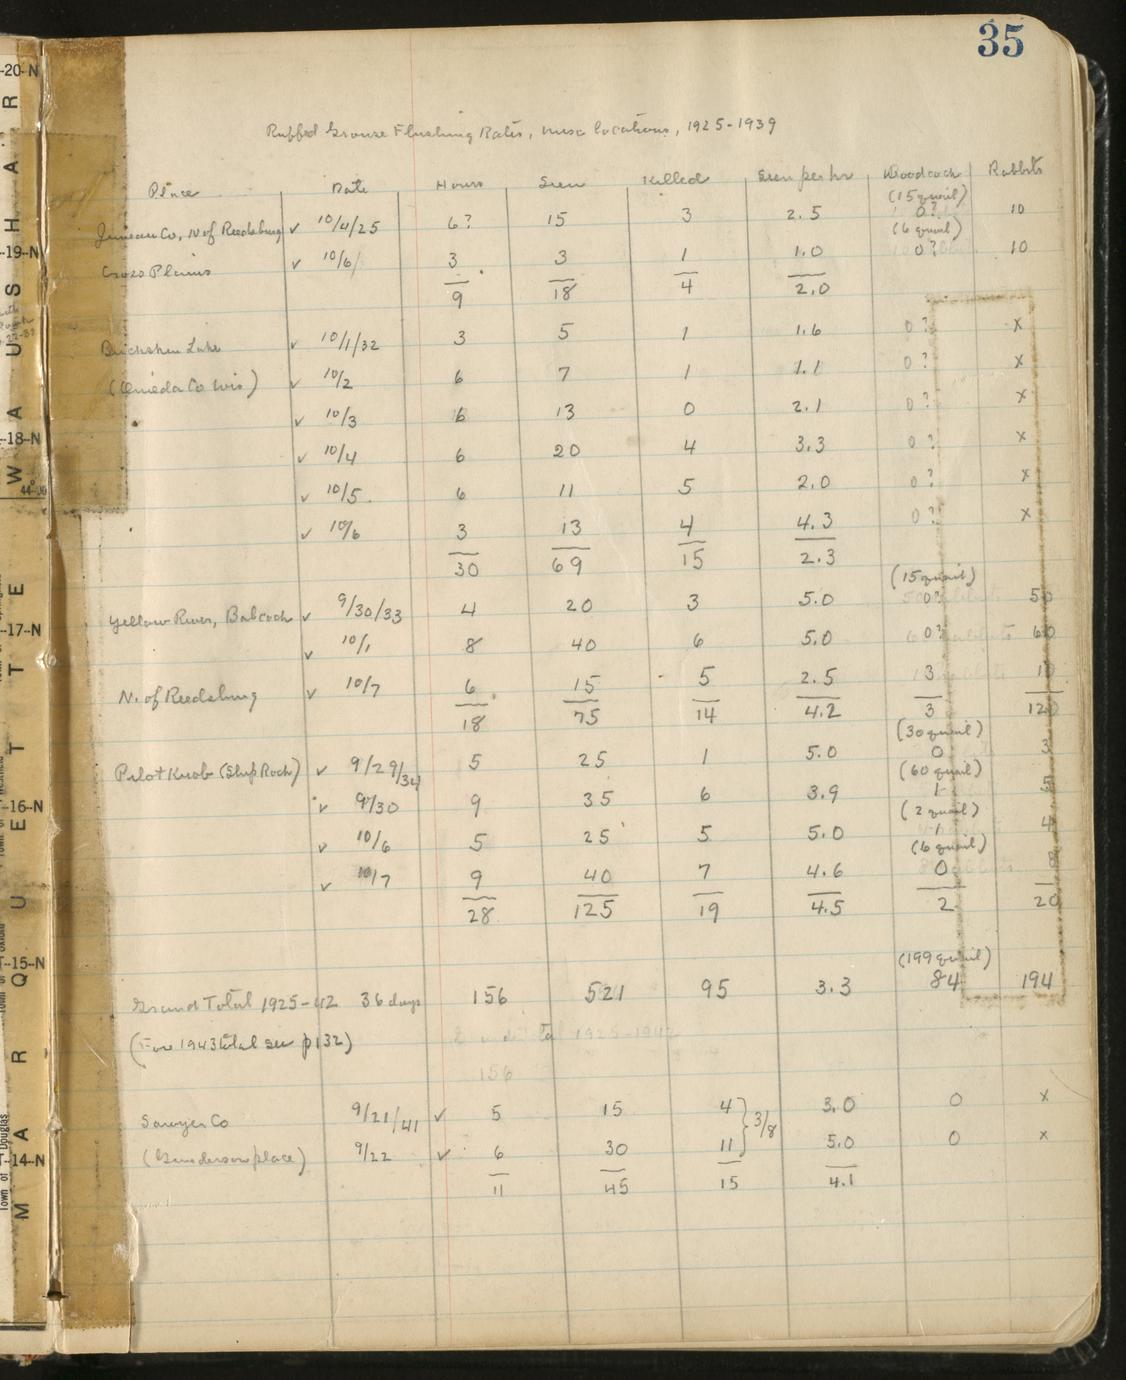 35
Ruffed Grouse Flushing Rates, misc locations, 1925-1939
Place Date Hours Seen Killed Seen per hr Woodcock Rabbits
(15 quail)
Juneau Co, N of Reedsburg v 10/4/25 6? 15 3 2.5 0? 10
(6 quail)
Cross Plains v 10/6/ 3 3 1 1.0 0? 10
9 18 4 2.0
Lake v 10/1/32 3 5 1 1.6 0? x
(Oneida Co Wis) v 10/2 6 7 1 1.1 0? x
v 10/3 6 13 0 2.1 0? x
v 10/4 6 20 4 3.3 0? x
v 10/5 6 11 5 2.0 0? x
v 10/6 3 13 4 4.3 0? x
30 69 15 2.3
(15 quail)
Yellow River, Babcock v 9/30/33 4 20 3 5.0 0? 50
v 10/1 8 40 6 5.0 0? 60
N. of Reedsburg v 10/7 6 15 5 2.5 3 10
18 75 14 4.2 3 120
(30 quail)
Pilot Knob (Ship Rock) v 9/29/34 5 25 1 5.0 0 3
(60 quail)
v 9/30 9 35 6 3.9 1 5
(2 quail)
v 10/6 5 25 5 5.0 1 4
(6 quail)
v 10/7 9 40 7 4.6 0 8
28 125 19 4.5 2 20
(199 quail)
Grand Total 1925-42 36 days 156 521 95 3.3 84 194
(For 1943 total see p132)
total 1925-1942
156
Sawyer Co 9/21/41 v 5 15 4 } 3/8 3.0 0 x
(Gunderson place) 9/22 v 6 30 11 5.0 0 x
11 45 15 4.1
-20-N
-19-N
-18-N
44°00
-17-N
-16-N
T-15-N
T-14-N
WAUSHAR
MARQUETTE
Town of Douglas